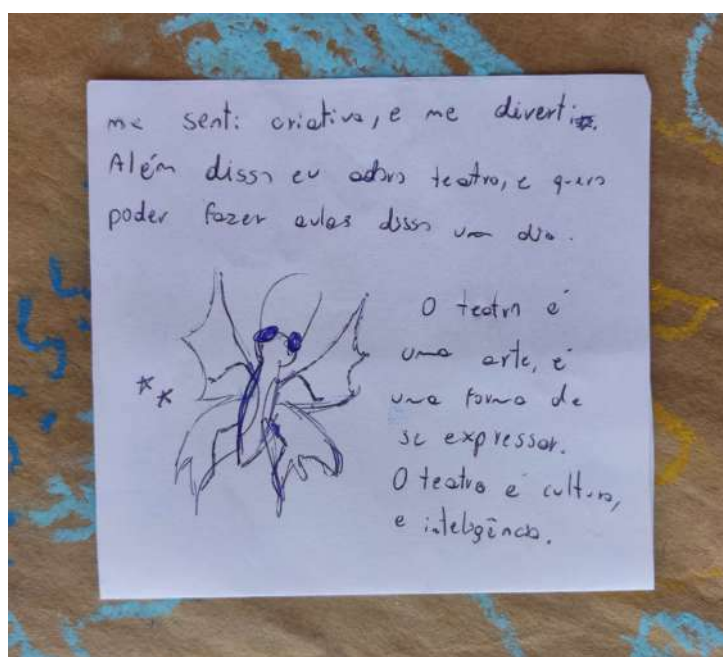 me senti criativa, e me diverti.
Além disso eu adoro teatro, e quero
poder fazer aulas disso um dia.
O teatro é
uma arte, é
uma forma de
se expressar.
O teatro é cultura,
e inteligência.